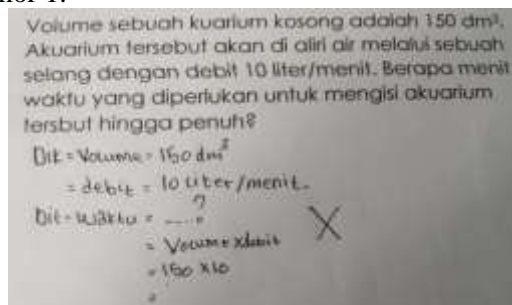 Volume sebuah kuarium kosong adalah 150 dm³.
Akuarium tersebut akan di aliri air melalui sebuah
selang dengan debit 10 liter/menit. Berapa menit
waktu yang diperlukan untuk mengisi akuarium
tersbut hingga penuh?
Dit = Volume = 150 dm³
= debit = 10 liter/menit.
Dit = waktu = ......?
= Volume x debit
= 150 x 10
=
X